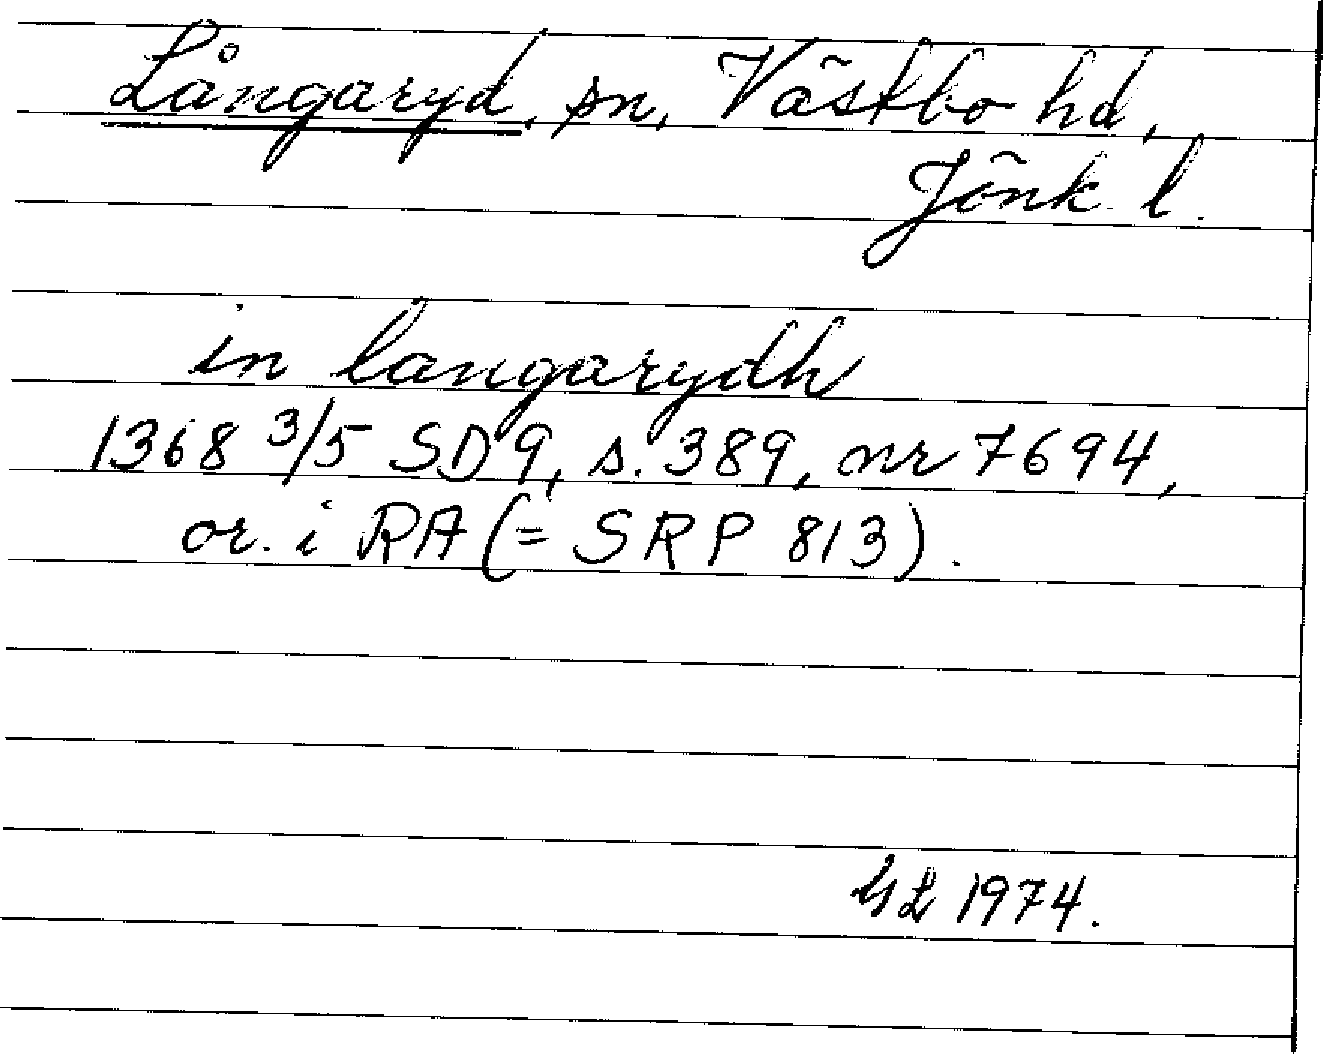 Långaryd, sn, Västbo hd,
Jönk. l.
in langarydh
1368 3/5 SD9, s. 389, nr 7694,
or. i RA (= SRP 813).
1974.